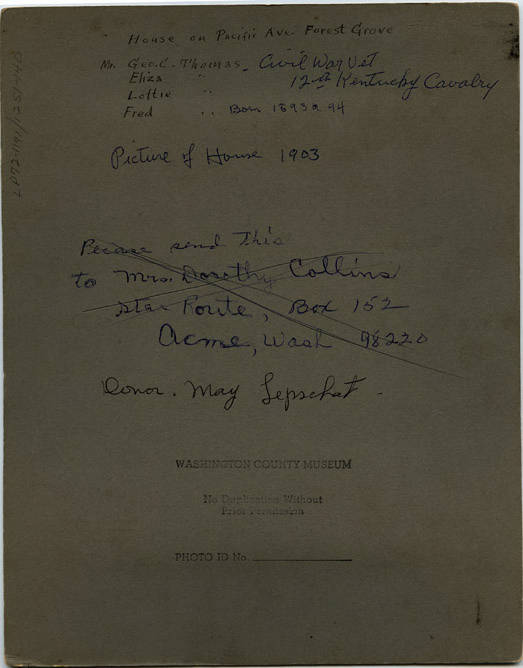 House on Pacific Ave. Forest Grove
Mr. Geo. C. Thomas - Civil War Vet
Eliza " 12th Kentucky Cavalry
Lottie "
Fred " Born 1893 or 94
Picture of House 1903
Please send This
to Mrs. Dorothy Collins
Star Route, Box 152
Acme, Wash 98220
Donor. May Lepschat -
WASHINGTON COUNTY MUSEUM
No Duplication Without
Prior Permission
PHOTO ID No.